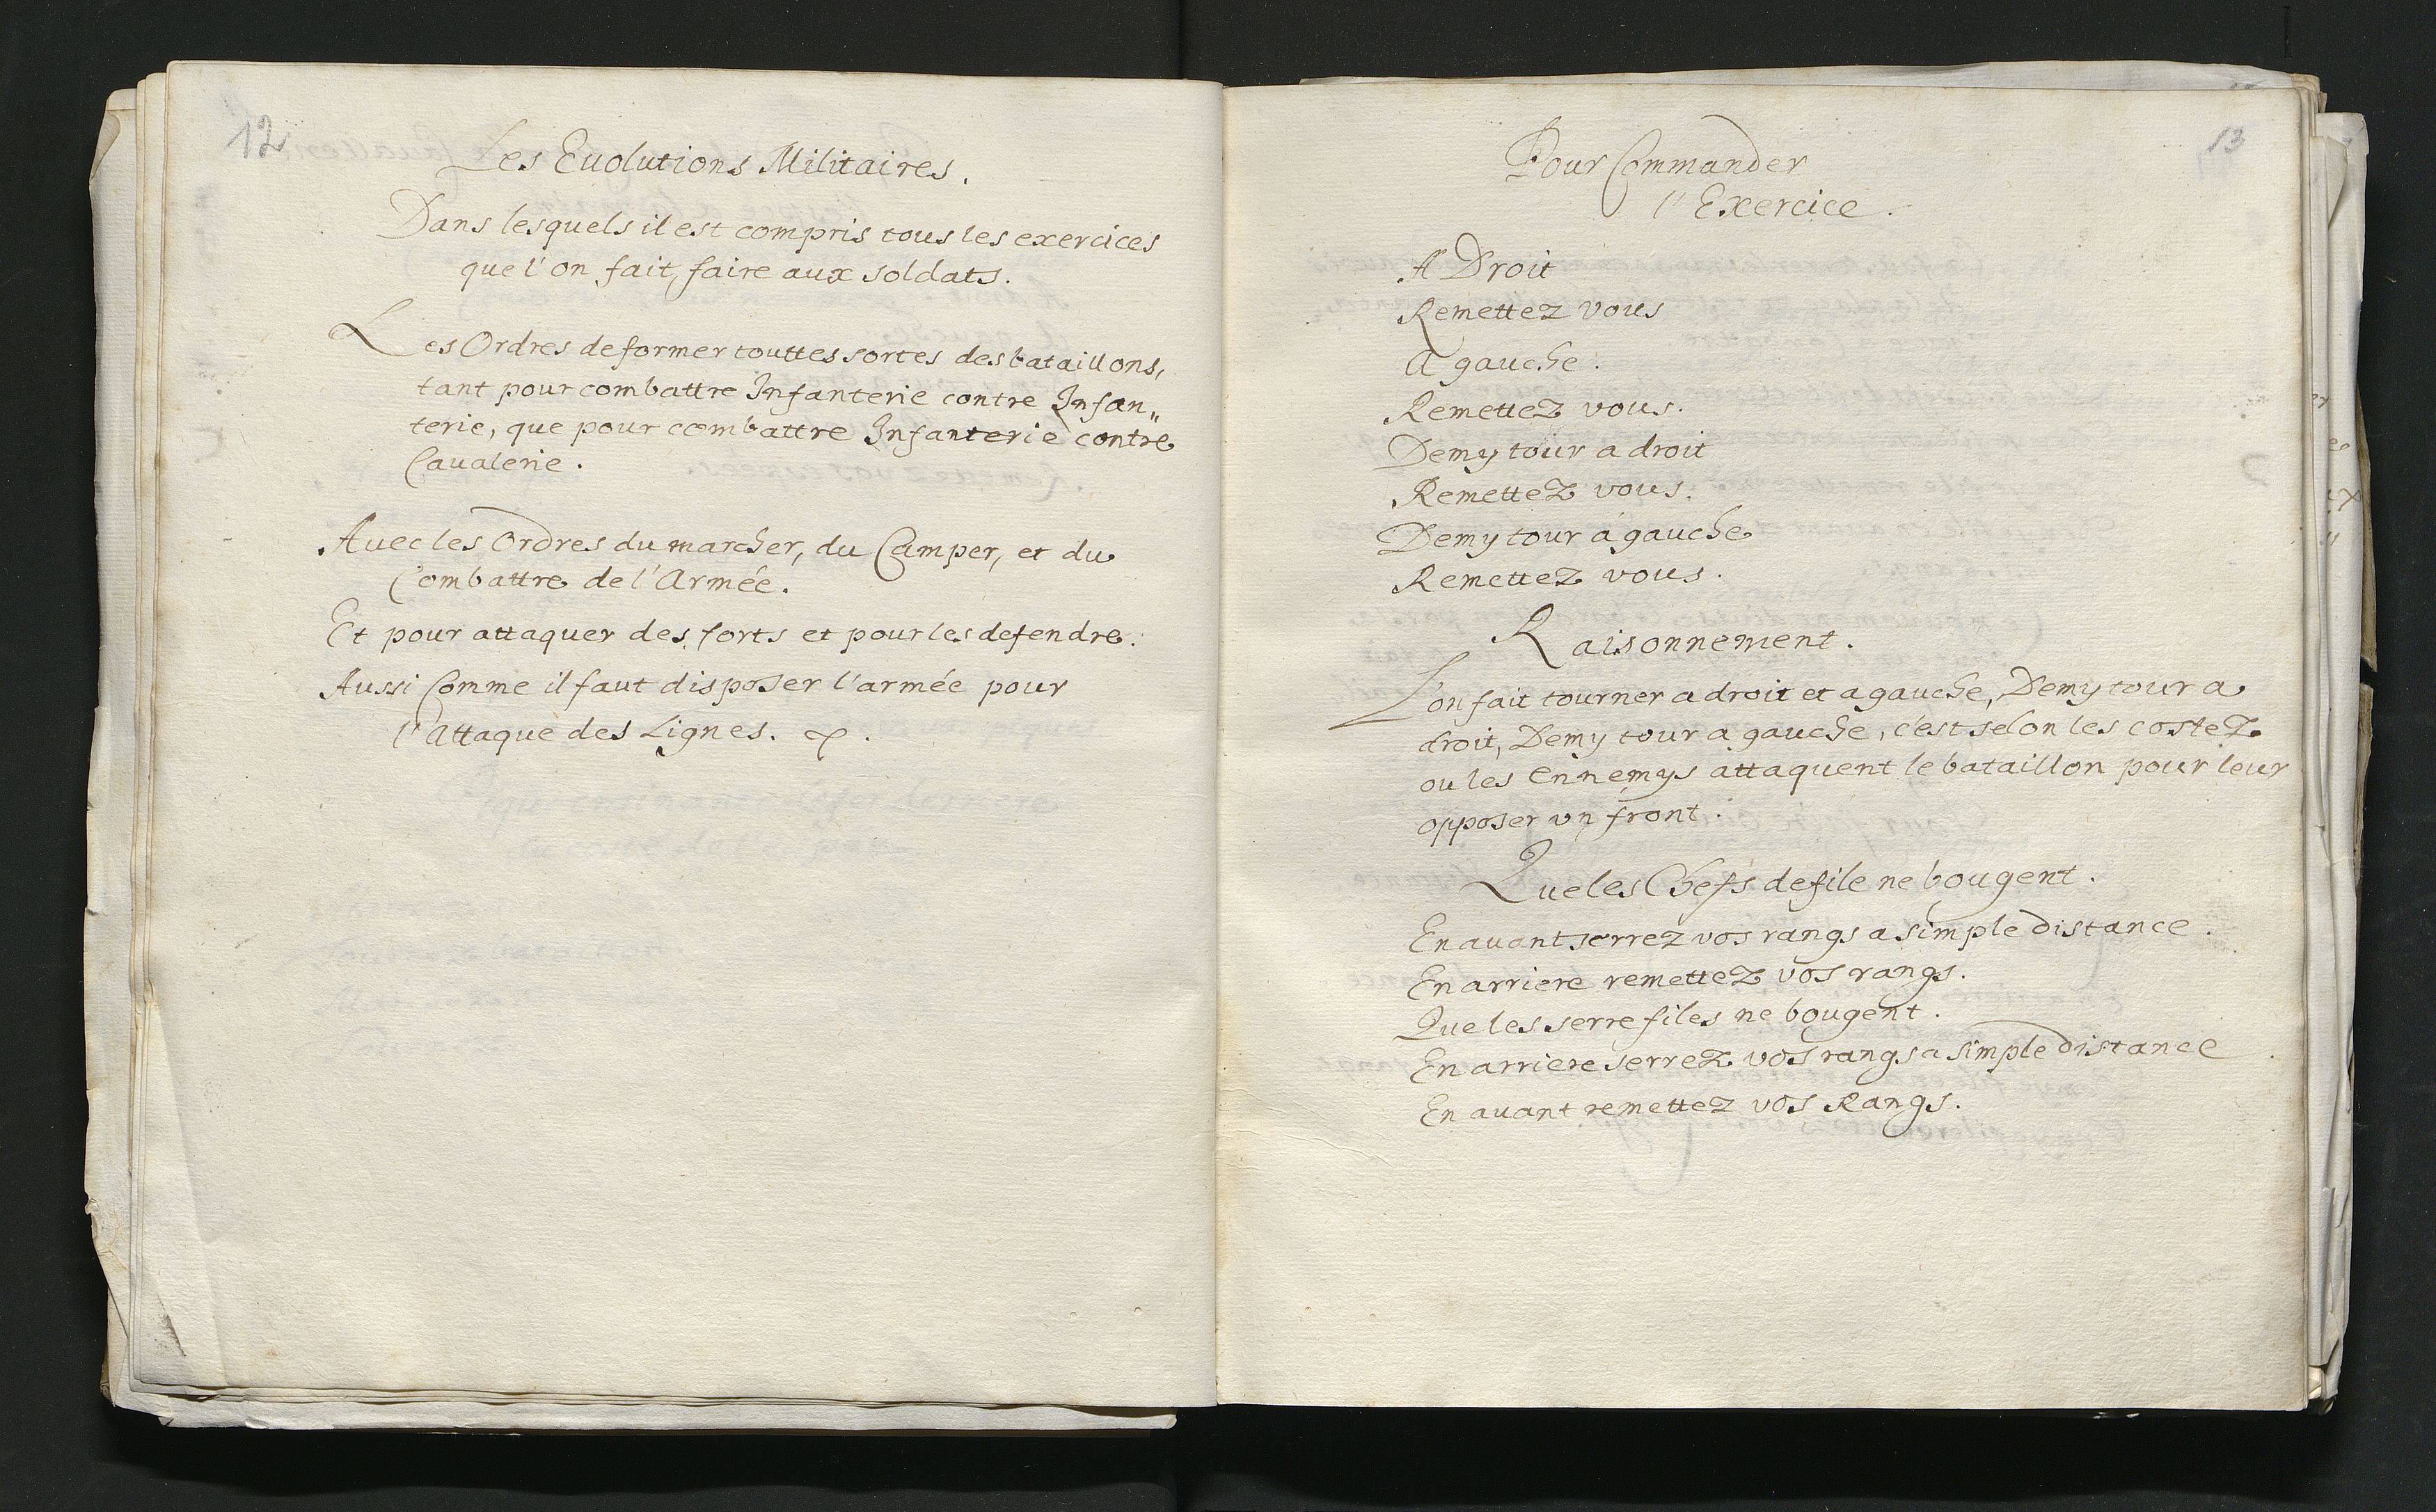 12
Les Euolutions Militaires.
Dans lesquels il est compris tous les exercices
que l'on fait faire aux soldats.
Les Ordres de former touttes sortes des bataillons,
tant pour combattre Infanterie contre Infan„
terie, que pour combattre Infanterie contre
Caualerie.
Auec les Ordres du marcher, du Camper, et du
Combattre de l'Armée.
Et pour attaquer des forts et pour les defendre.
Aussi Comme il faut disposer l'armée pour
l'attaque des Lignes.
13
Pour Commander
l'Exercice.
A Droit
Remettez vous
A gauche.
Remettez vous.
Demy tour a droit
Remettez vous.
Demy tour à gauche
Remettez vous.
Raisonnement.
L'on fait tourner a droit et a gauche, Demy tour a
droit, Demy tour a gauche, c'est selon les costez
ou les Ennemys attaquent le bataillon pour leur
opposer vn front.
Que les Chefs de file ne bougent.
En auant serrez vos rangs a simple distance.
En arriere remettez vos rangs.
Que les serre files ne bougent.
En arriere serrez vos rangs a simple distance
En auant remettez vos Rangs.